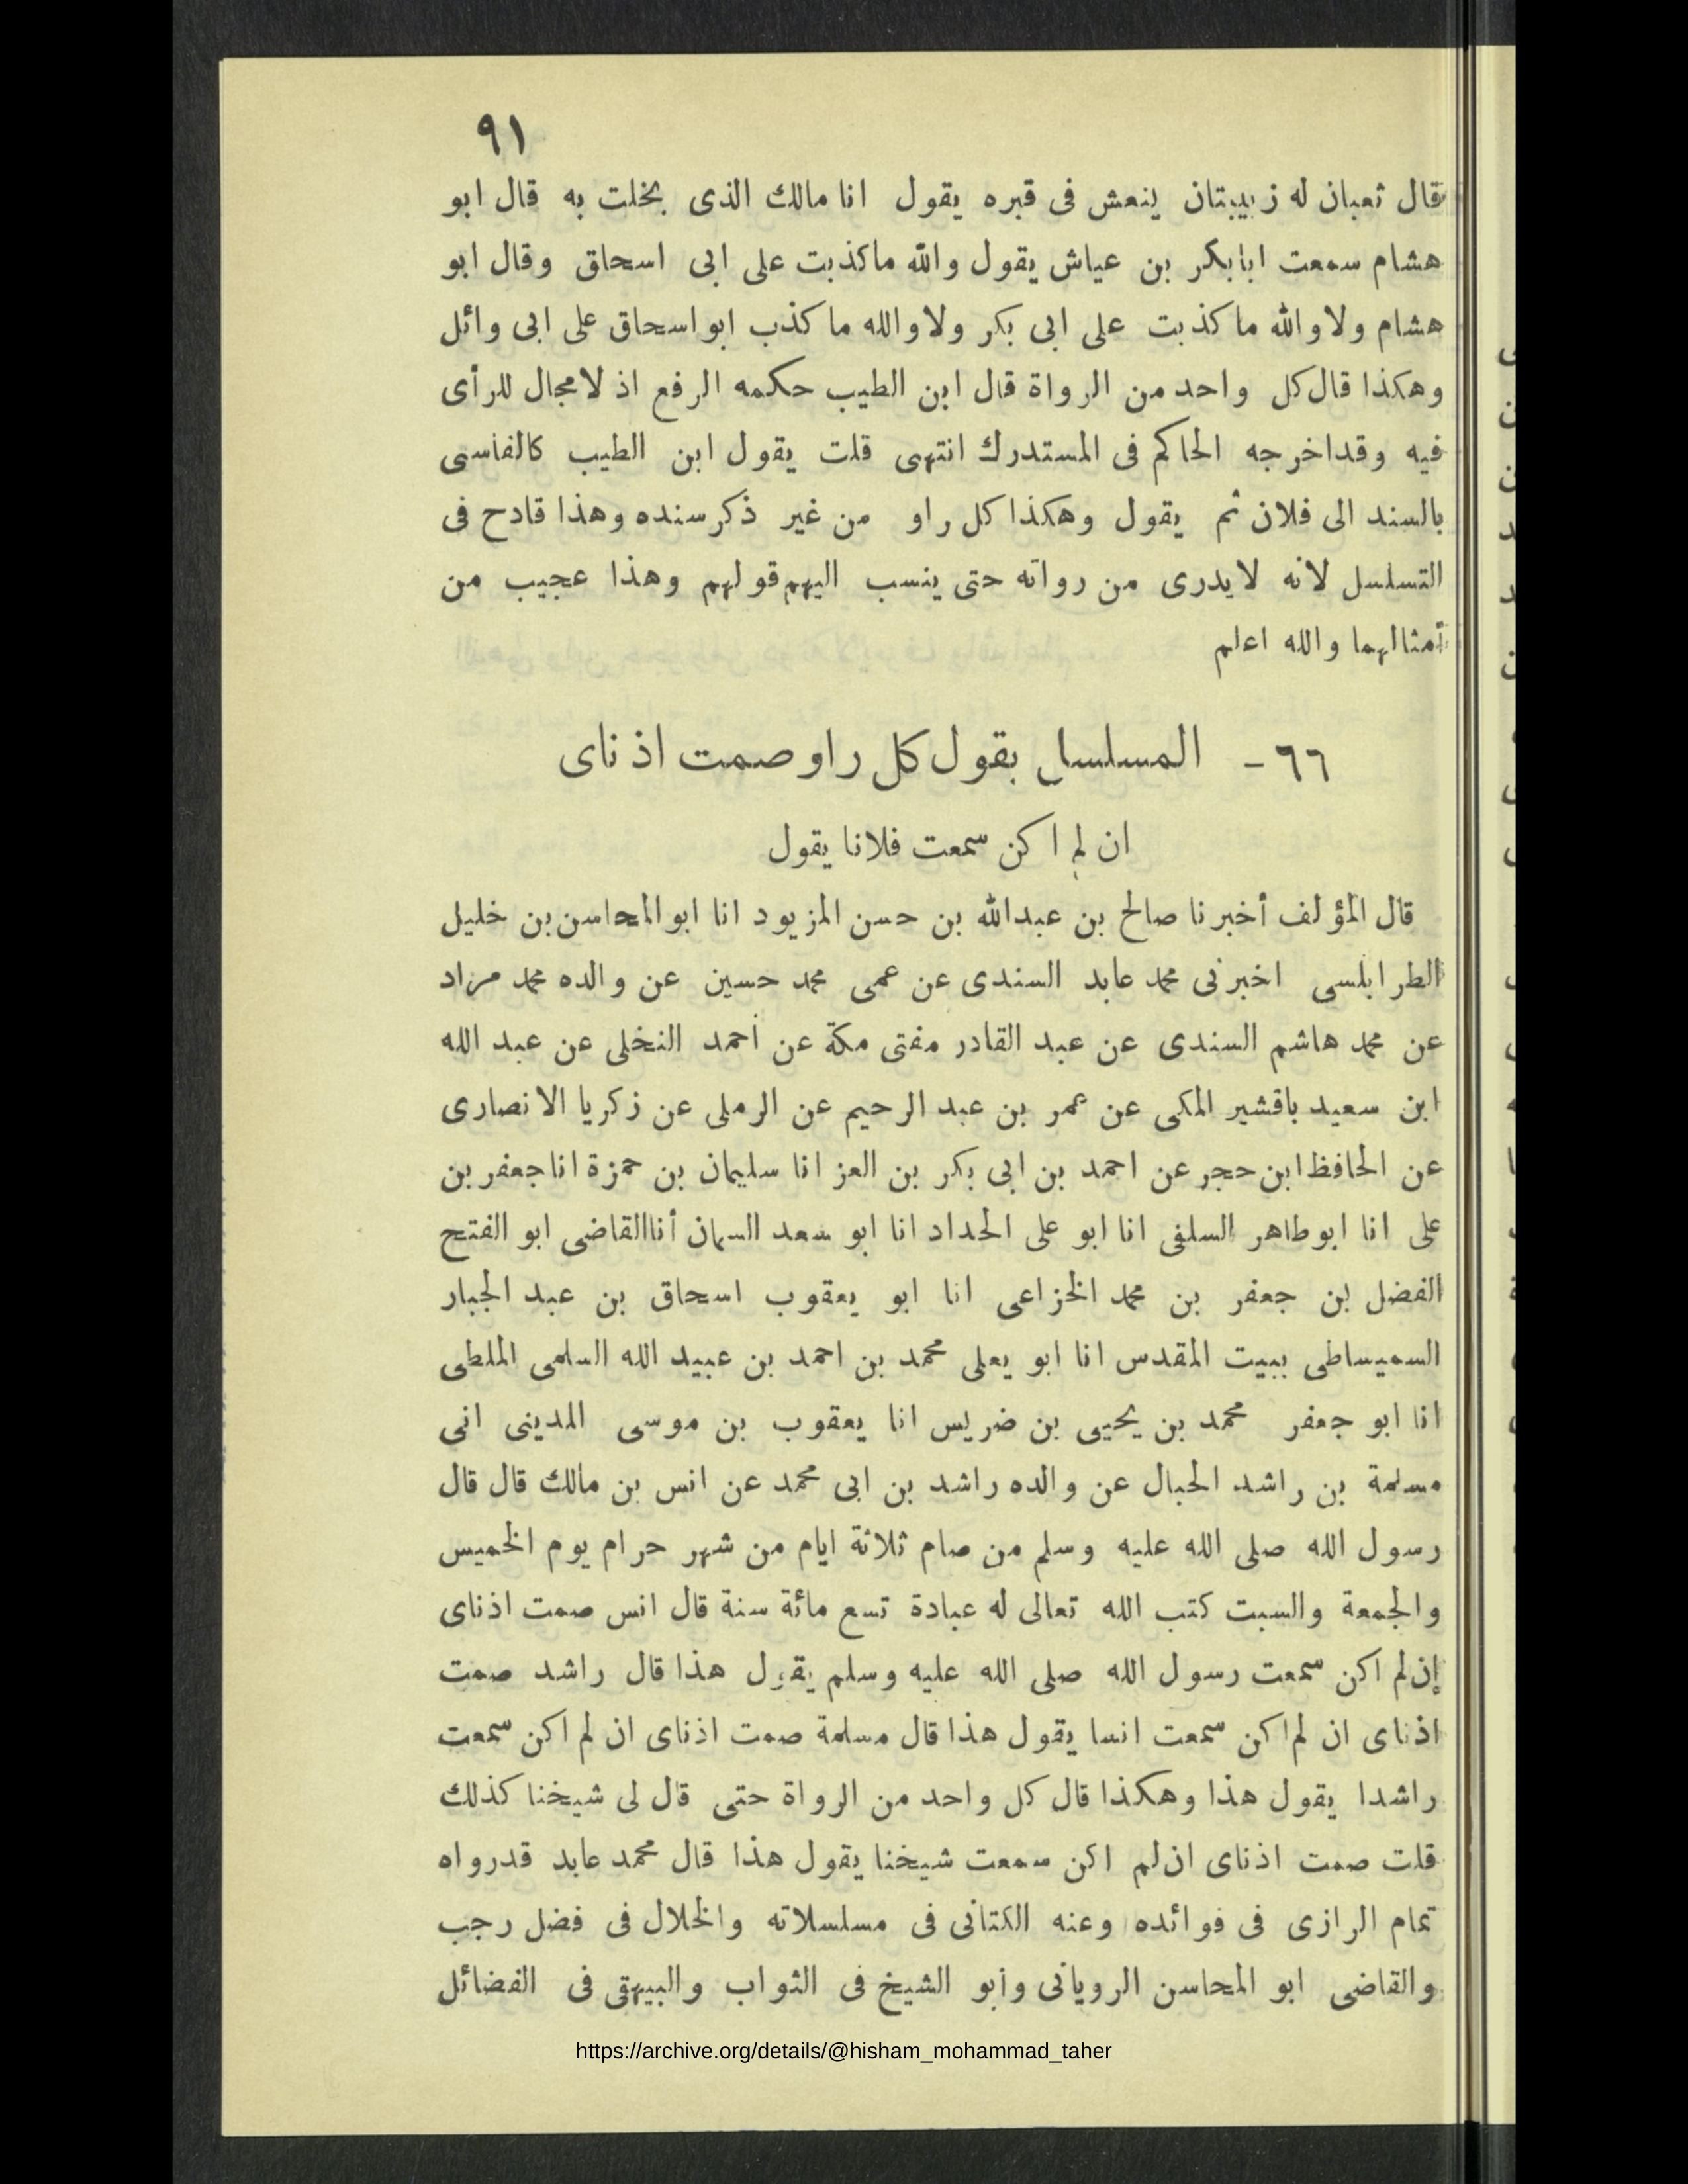 ٩١
قال ثعبان له زبيبتان ينعش فى قبره يقول انا مالك الذى بخلت به قال ابو
هشام سمعت ابابكر بن عياش يقول والله ماكذبت على ابى اسحاق وقال ابو
هشام ولاوالله ماكذبت على ابى بكر ولاوالله ماكذب ابواسحاق على ابى وائل
وهكذا قال كل واحد من الرواة قال ابن الطيب حكمه الرفع اذ لامجال للرأى
فيه وقداخرجه الحاكم فى المستدرك انتهى قلت يقول ابن الطيب كالفاسى
بالسند الى فلان ثم يقول وهكذا كل راو من غير ذكر سنده وهذا قادح فى
التسلسل لانه لايدرى من رواته حتى ينسب اليهم قولهم وهذا عجيب من
أمثالهما والله اعلم
٦٦ - المسلسل بقول كل راو صمت اذناى
ان لم اكن سمعت فلانا يقول
قال المؤلف أخبرنا صالح بن عبدالله بن حسن المزيود انا ابوالمحاسن بن خليل
الطرابلسى اخبرنى محمد عابد السندى عن عمى محمد حسين عن والده محمد مراد
عن محمد هاشم السندى عن عبد القادر مفتى مكة عن أحمد النخلى عن عبد الله
ابن سعيد باقشير المكى عن عمر بن عبد الرحيم عن الرملى عن زكريا الانصارى
عن الحافظ ابن حجر عن احمد بن ابى بكر بن العز انا سليمان بن حمزة انا جعفر بن
على انا ابوطاهر السلفى انا ابو على الحداد انا ابو سعد السمان أنا القاضى ابو الفتح
الفضل بن جعفر بن محمد الخزاعى انا ابو يعقوب اسحاق بن عبد الجبار
السميساطى ببيت المقدس انا ابو يعلى محمد بن احمد بن عبيد الله السلمى الملطى
انا ابو جعفر محمد بن يحيى بن ضريس انا يعقوب بن موسى المدينى انى
مسلمة بن راشد الحبال عن والده راشد بن ابى محمد عن انس بن مالك قال قال
رسول الله صلى الله عليه وسلم من صام ثلاثة ايام من شهر حرام يوم الخميس
والجمعة والسبت كتب الله تعالى له عبادة تسع مائة سنة قال انس صمت اذناى
إن لم اكن سمعت رسول الله صلى الله عليه وسلم يقول هذا قال راشد صمت
اذناى ان لم اكن سمعت انسا يقول هذا قال مسلمة صمت اذناى ان لم اكن سمعت
راشدا يقول هذا وهكذا قال كل واحد من الرواة حتى قال لى شيخنا كذلك
قلت صمت اذناى ان لم اكن سمعت شيخنا يقول هذا قال محمد عابد قدرواه
تمام الرازى فى فوائده وعنه الكتانى فى مسلسلاته والخلال فى فضل رجب
والقاضى ابو المحاسن الرويانى وأبو الشيخ فى الثواب والبيهقى فى الفضائل
https://archive.org/details/@hisham_mohammad_taher